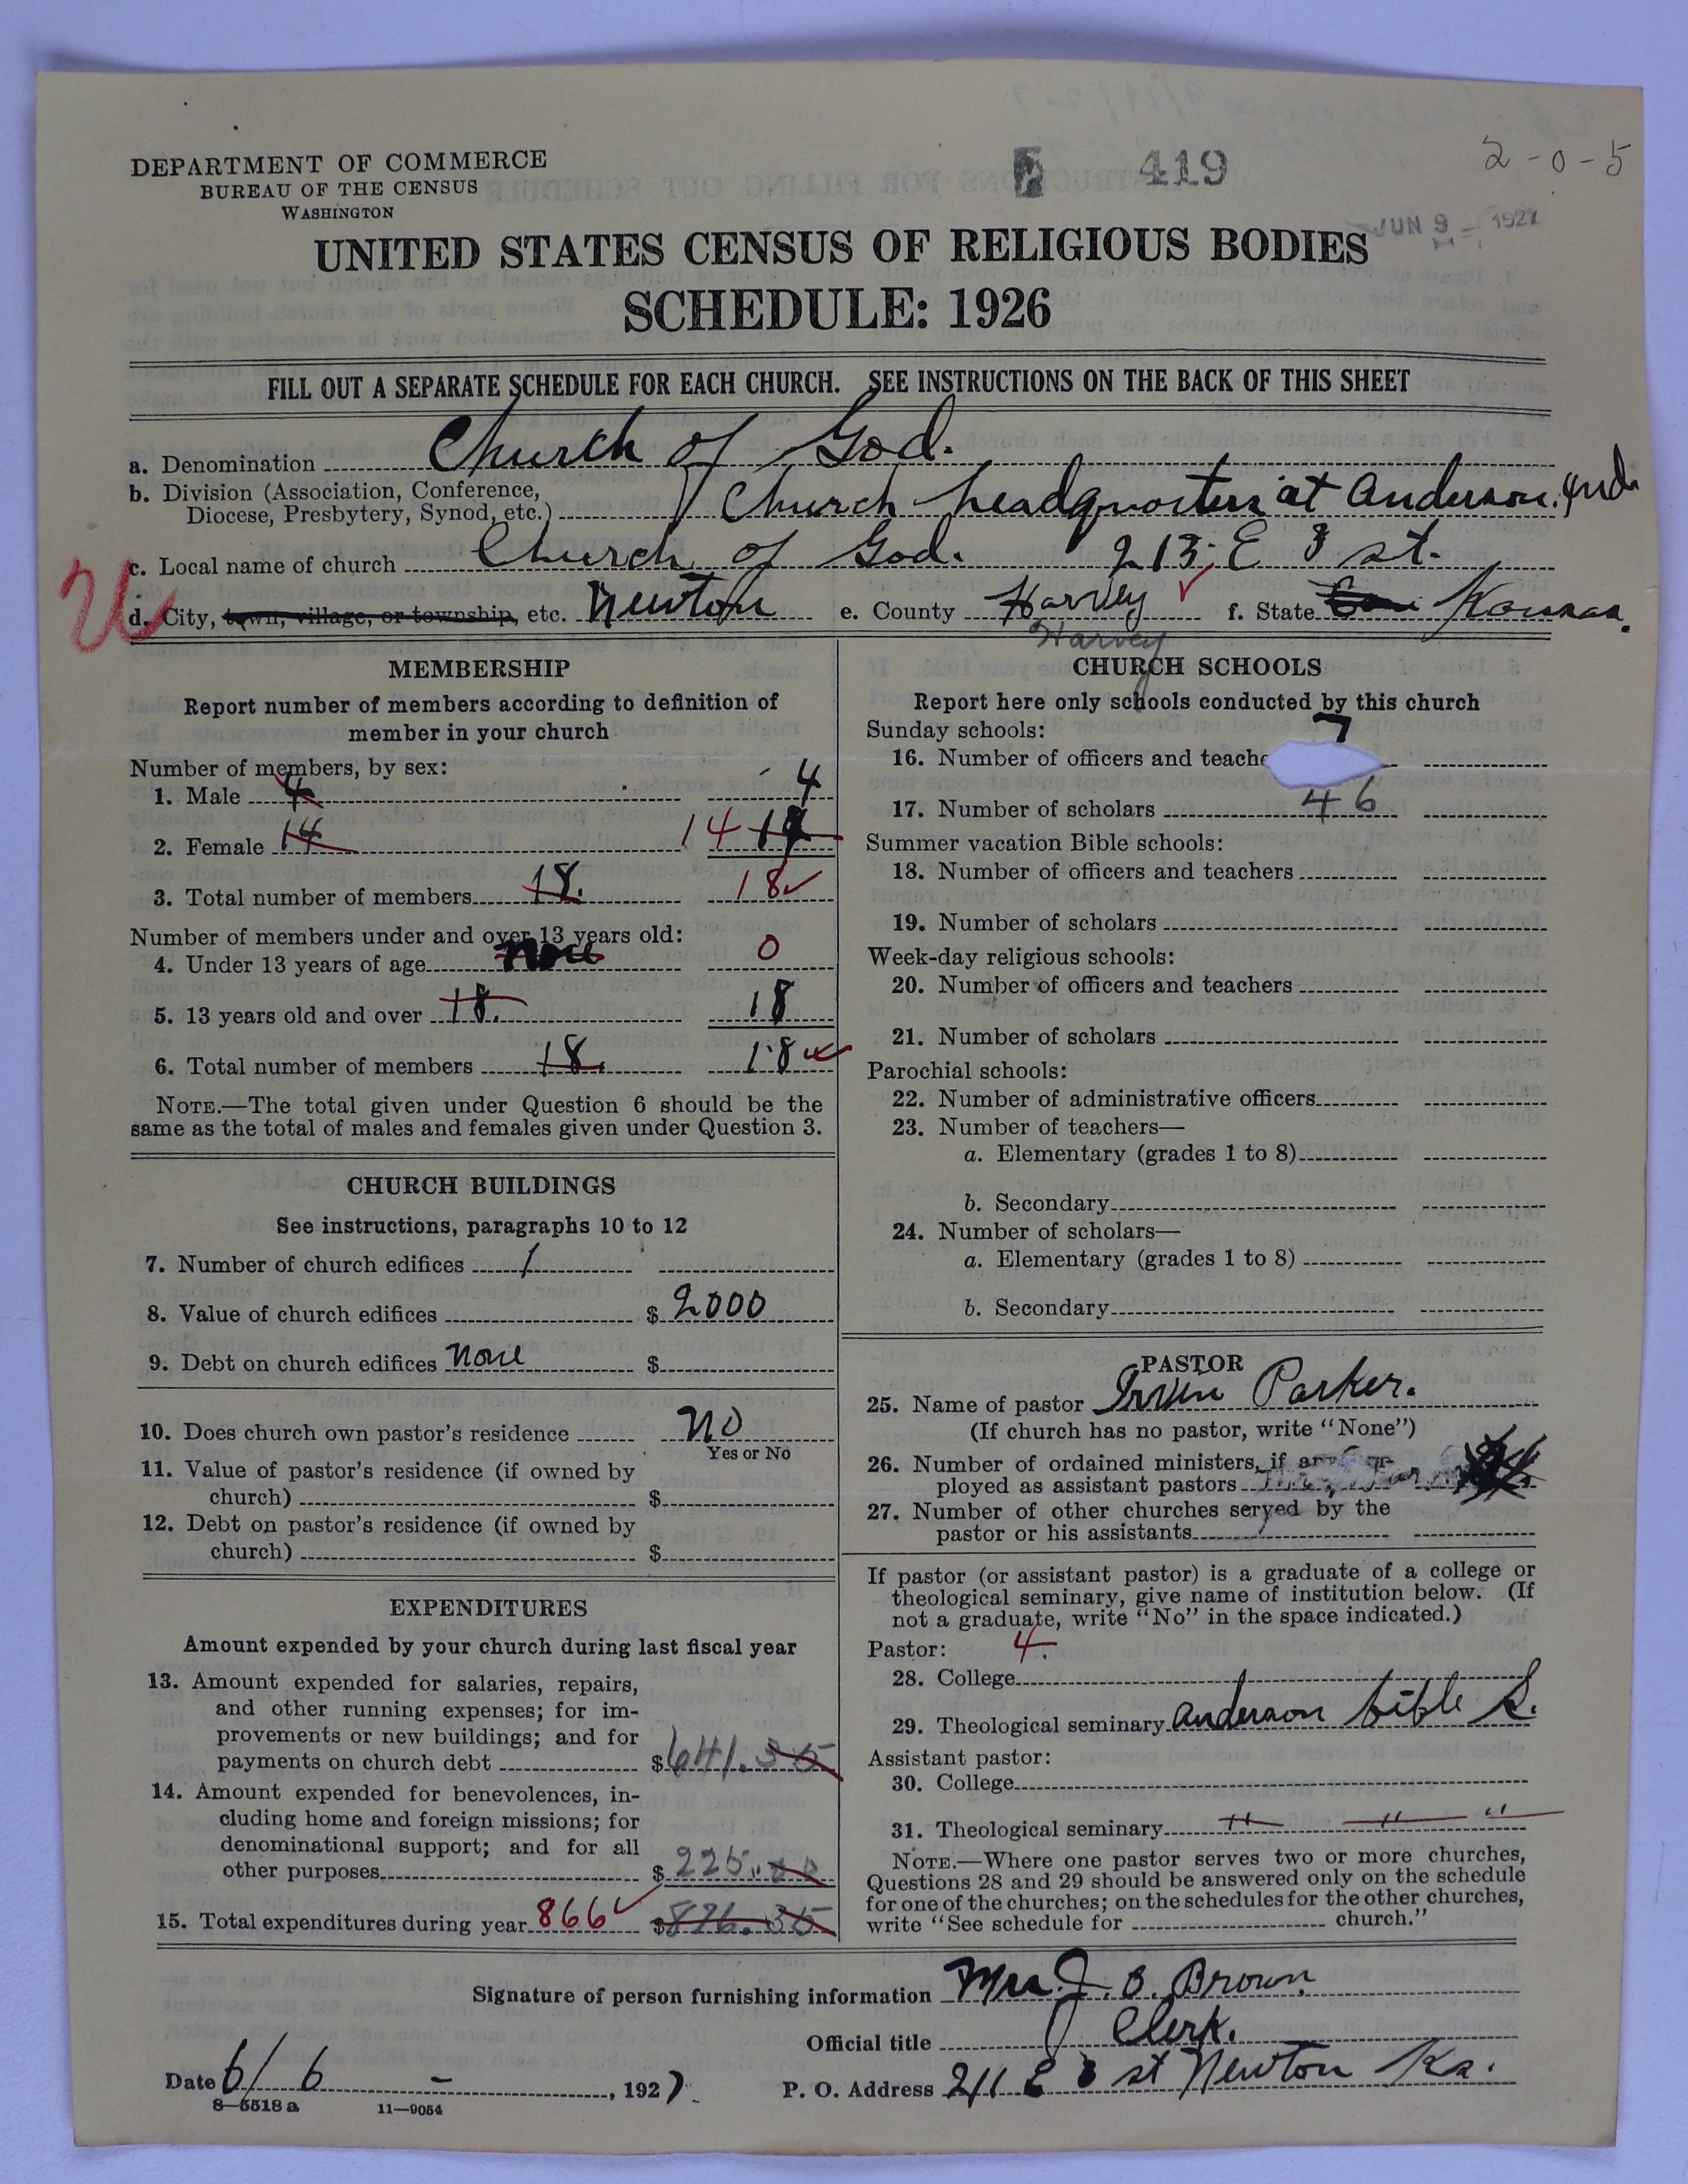 2-0-5
419
JUN 9 - 1927
DEPARTMENT OF COMMERCE
BUREAU OF THE CENSUS
WASHINGTON
UNITED STATES CENSUS OF RELIGIOUS BODIES
SCHEDULE: 1926
FILL OUT A SEPARATE SCHEDULE FOR EACH CHURCH. SEE INSTRUCTIONS ON THE BACK OF THIS SHEET
a. Denomination Church of God.
b. Division (Association, Conference,
Diocese, Presbytery, Synod, etc.) Church headquarters at Anderson. Ind.
c. Local name of church Church of God. 213 E 3 st.
d. City, town, village, or township, etc. Newton e. County Harvey f. State Kansas.
Harvey
MEMBERSHIP
Report number of members according to definition of
member in your church
Number of members, by sex:
1. Male 4 4
2. Female 14 14
3. Total number of members 18. 18
Number of members under and over 13 years old:
4. Under 13 years of age none 0
5. 13 years old and over 18. 18
6. Total number of members 18. 18
NOTE.—The total given under Question 6 should be the
same as the total of males and females given under Question 3.
CHURCH BUILDINGS
See instructions, paragraphs 10 to 12
7. Number of church edifices 1
8. Value of church edifices $ 2000
9. Debt on church edifices none $
10. Does church own pastor's residence no
Yes or No
11. Value of pastor's residence (if owned by
church) $
12. Debt on pastor's residence (if owned by
church) $
EXPENDITURES
Amount expended by your church during last fiscal year
13. Amount expended for salaries, repairs,
and other running expenses; for im-
provements or new buildings; and for
payments on church debt $641.35
14. Amount expended for benevolences, in-
cluding home and foreign missions; for
denominational support; and for all
other purposes $ 225.00
15. Total expenditures during year 866 $876.35
CHURCH SCHOOLS
Report here only schools conducted by this church
Sunday schools:
16. Number of officers and teache 7
17. Number of scholars 46
Summer vacation Bible schools:
18. Number of officers and teachers
19. Number of scholars
Week-day religious schools:
20. Number of officers and teachers
21. Number of scholars
Parochial schools:
22. Number of administrative officers
23. Number of teachers—
a. Elementary (grades 1 to 8)
b. Secondary
24. Number of scholars—
a. Elementary (grades 1 to 8)
b. Secondary
PASTOR
25. Name of pastor Irvin Parker.
(If church has no pastor, write "None")
26. Number of ordained ministers, if any
ployed as assistant pastors
27. Number of other churches served by the
pastor or his assistants
If pastor (or assistant pastor) is a graduate of a college or
theological seminary, give name of institution below. (If
not a graduate, write "No" in the space indicated.)
Pastor: 4.
28. College
29. Theological seminary Anderson bible S.
Assistant pastor:
30. College
31. Theological seminary " " "
NOTE.—Where one pastor serves two or more churches,
Questions 28 and 29 should be answered only on the schedule
for one of the churches; on the schedules for the other churches,
write "See schedule for church."
Signature of person furnishing information Mrs. J. O. Brown.
Official title Clerk.
Date 6/6 - , 1927. P. O. Address 211 E 3 st Newton Ks.
8—5518 a 11—9054